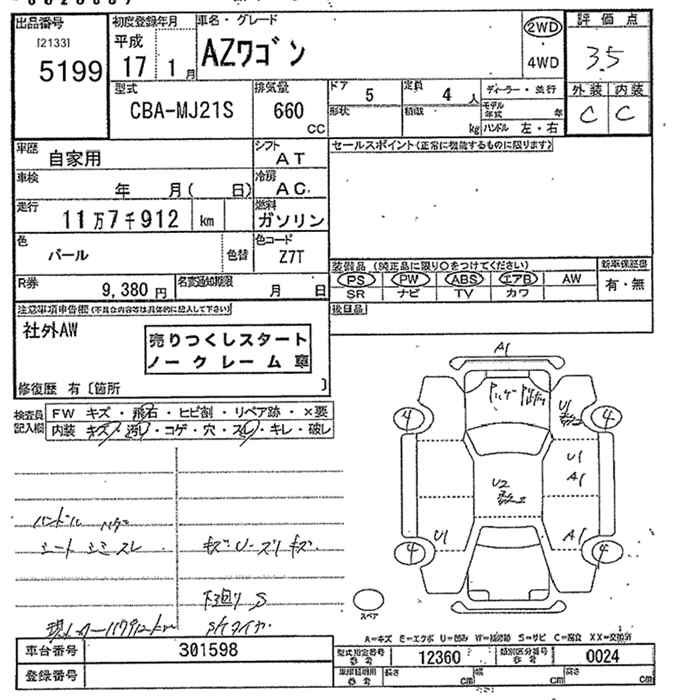 出品番号 初度登録年月 車名・グレード 評価点
[2133] 平成 2WD
5199 17年 1月 AZワゴン 4WD 3.5
型式 排気量 ドア 5 定員 4人 ディーラー・並行 外装 内装
CBA-MJ21S 660 CC 形状 積載 kg モデル年式 年 ハンドル 左・右 C C
車歴 自家用 シフト AT セールスポイント(正常に機能するものに限ります)
車検 年 月( 日) 冷房 AC
走行 11万7千912 km 燃料 ガソリン
色 パール 色替 色コード Z7T
装備品 (純正品に限り○をつけてください) 新車保証書
R券 9,380円 名変通知期限 月 日 PS PW ABS エアB AW 有・無
SR ナビ TV カワ
注意事項申告欄(不具合内容等は具体的に記入して下さい) 後日品
社外AW
売りつくしスタート
ノークレーム車
修復歴 有〔箇所 〕
検査員記入欄 FW キズ・飛石・ヒビ割・リペア跡・×要
内装 キズ・汚れ・コゲ・穴・スレ・キレ・破レ
A1
U1
4 4
U1
A1
U2
U1 A1
4 4
ハンドル ハゲ
シート シミ スレ キズ・U・スリキズ
下廻り S
スペア
A=キズ E=エクボ U=凹み W=補修跡 S=サビ C=腐食 XX=交換済
車台番号 301598 型式指定番号 参考 12360 類別区分番号 参考 0024
登録番号 車庫証明用 参考 長さ cm 幅 cm 高さ cm